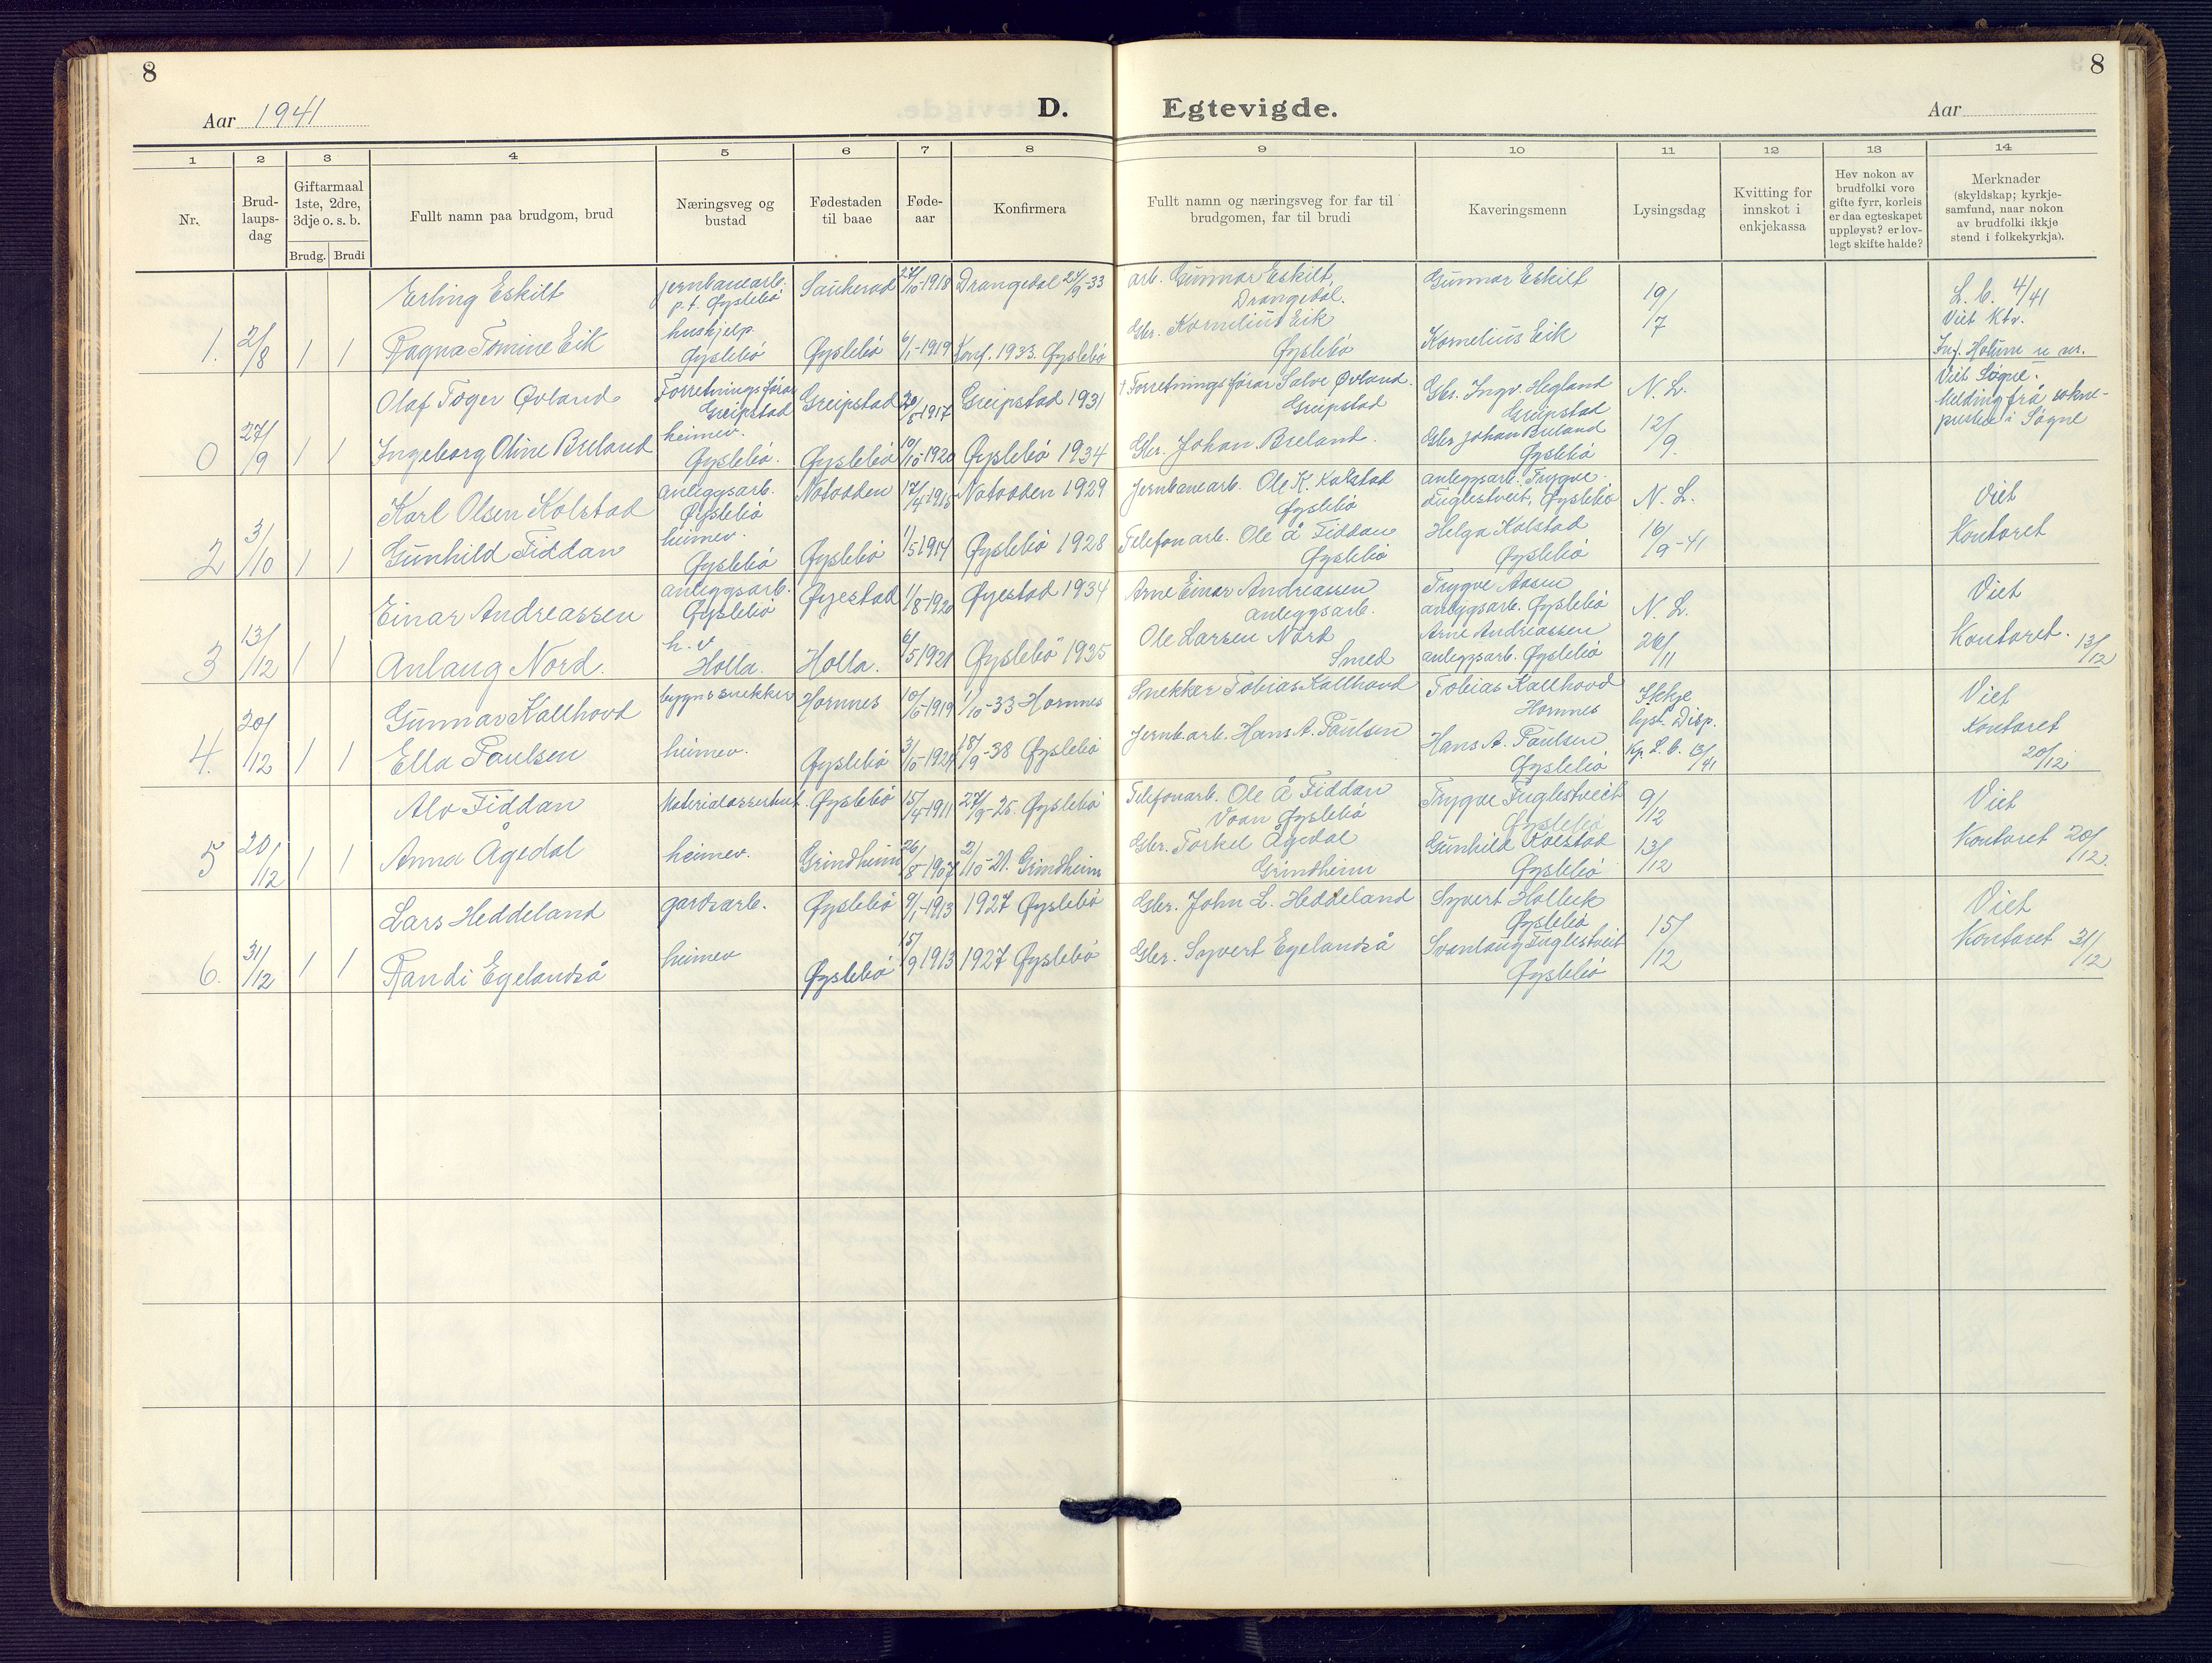 8
8
Aar 1941
D. Egtevigde.
Aar
1 2 3 4 5 6 7 8 9 10 11 12 13 14
Nr.
Brud-
laups-
dag
Giftarmaal
1ste, 2dre,
3dje o. s. b.
Brudg. Brudi
Fullt namn paa brudgom, brud
Næringsveg og
bustad
Fødestaden
til baae
Føde-
aar
Konfirmera
Fullt namn og næringsveg for far til
brudgomen, far til brudi
Kaveringsmenn
Lysingsdag
Kvitting for
innskot i
enkjekassa
Hev nokon av
brudfolki vore
gifte fyrr, korleis
er daa egteskapet
uppløyst? er lov-
legt skifte halde?
Merknader
(skyldskap; kyrkje-
samfund, naar nokon
av brudfolki ikkje
stend i folkekyrkja).
Erling Eskilt
jernbanearb.
p.t. Øyslebö
Sauherad 27/10-1918 Drangedal 24/9-33
arb. Gunnar Eskilt,
Drangedal.
Gunnar Eskilt
19/7
L. b. 4/41
Viet Ktr.
1. 2/8 1 1 Ragna Tomine Eik
hushjelp.
Øyslebö
Øyslebö 6/1-1919 Konf. 1933. Øyslebö
Gbr. Kornelius Eik
Øyslebö
Kornelius Eik
Inf. Holum u nr.
Olaf Toger Øvland
Forretningsförar
Greipstad
Greipstad 20/6-1917 Greipstad 1931
† Forretningsförar Salve Øvland.
Greipstad
Gbr. Ingv. Hegland
Greipstad
N. L.
Viet Sögne.
Melding frå sokne-
presten i Sögne
0 27/9 1 1 Ingeborg Oline Breland
heimev.
Øyslebö.
Øyslebö 10/10-1920 Øyslebö 1934
Gbr. Johan Breland.
Gbr Johan Breland
Øyslebö
12/9.
Karl Olsen Kolstad
anleggsarb.
Øyslebö
Notodden 17/4-1915 Notodden 1929
Jernbanearb. Ole K. Kolstad
Øyslebö
anleggsarb. Trygve
Fuglestveit, Øyslebö
N. L.
Viet
2 3/10 1 1 Gunhild Fiddan
heimev.
Øyslebö
Øyslebö 1/5 1914 Øyslebö 1928
Telefonarb. Ole Å Fiddan
Øyslebö
Helga Kolstad
Øyslebö
16/9-41
Kontoret
Einar Andreassen
anleggsarb.
Øyslebö
Øyestad 1/8-1920 Øyestad 1934
Arne Einar Andreassen
anleggsarb.
Trygve Aasen
anleggsarb. Øyslebö
N. L.
Viet
3 13/12 1 1 Anlaug Nord.
h. v
Holla.
Holla. 6/5 1921 Øyslebö 1935
Ole Larsen Nord
Smed
Arne Andreassen
anleggsarb. Øyslebö
26/11
Kontoret. 13/12
Gunnar Kallhovd
bygnssnekker
Hornnes 10/6-1919 1/10-33 Hornnes
Snekker Tobias Kallhovd
Tobias Kallhovd
Hornnes
Ikkje
lyst. Disp.
Viet
Kontoret
20/12
4. 20/12 1 1 Ella Paulsen
heimev.
Øyslebö 3/10-1924 18/9-38 Øyslebö
Jernb.arb. Hans A. Paulsen
Hans A. Paulsen
Øyslebö
Kp. L. b. 13/41
Alv Fiddan
Materialassistent.
Øyslebö 15/4-1911 27/9-25. Øyslebö
Telefonarb. Ole Å Fiddan
Voan Øyslebö
Trygve Fuglestveit
Øyslebö
9/12
Viet
5 20/12 1 1 Anna Ågedal
heimev.
Grindheim 26/8-1907 2/10-21. Grindheim
Gbr. Torkel Ågedal
Grindheim
Gunhild Kolstad
Øyslebö
13/12
Kontoret 20/12.
Lars Heddeland
gardsarb.
Øyslebö 9/1-1913 1927 Øyslebö
Gbr. John L. Heddeland
Syvert Holbek
Øyslebö
15/12
Viet
6. 31/12 1 1 Randi Egelandså
heimev
Øyslebö 15/9 1913 1927 Øyslebö
Gbr. Syvert Egelandså
Svanlaug Fuglestveit
Øyslebö
Kontoret 31/12